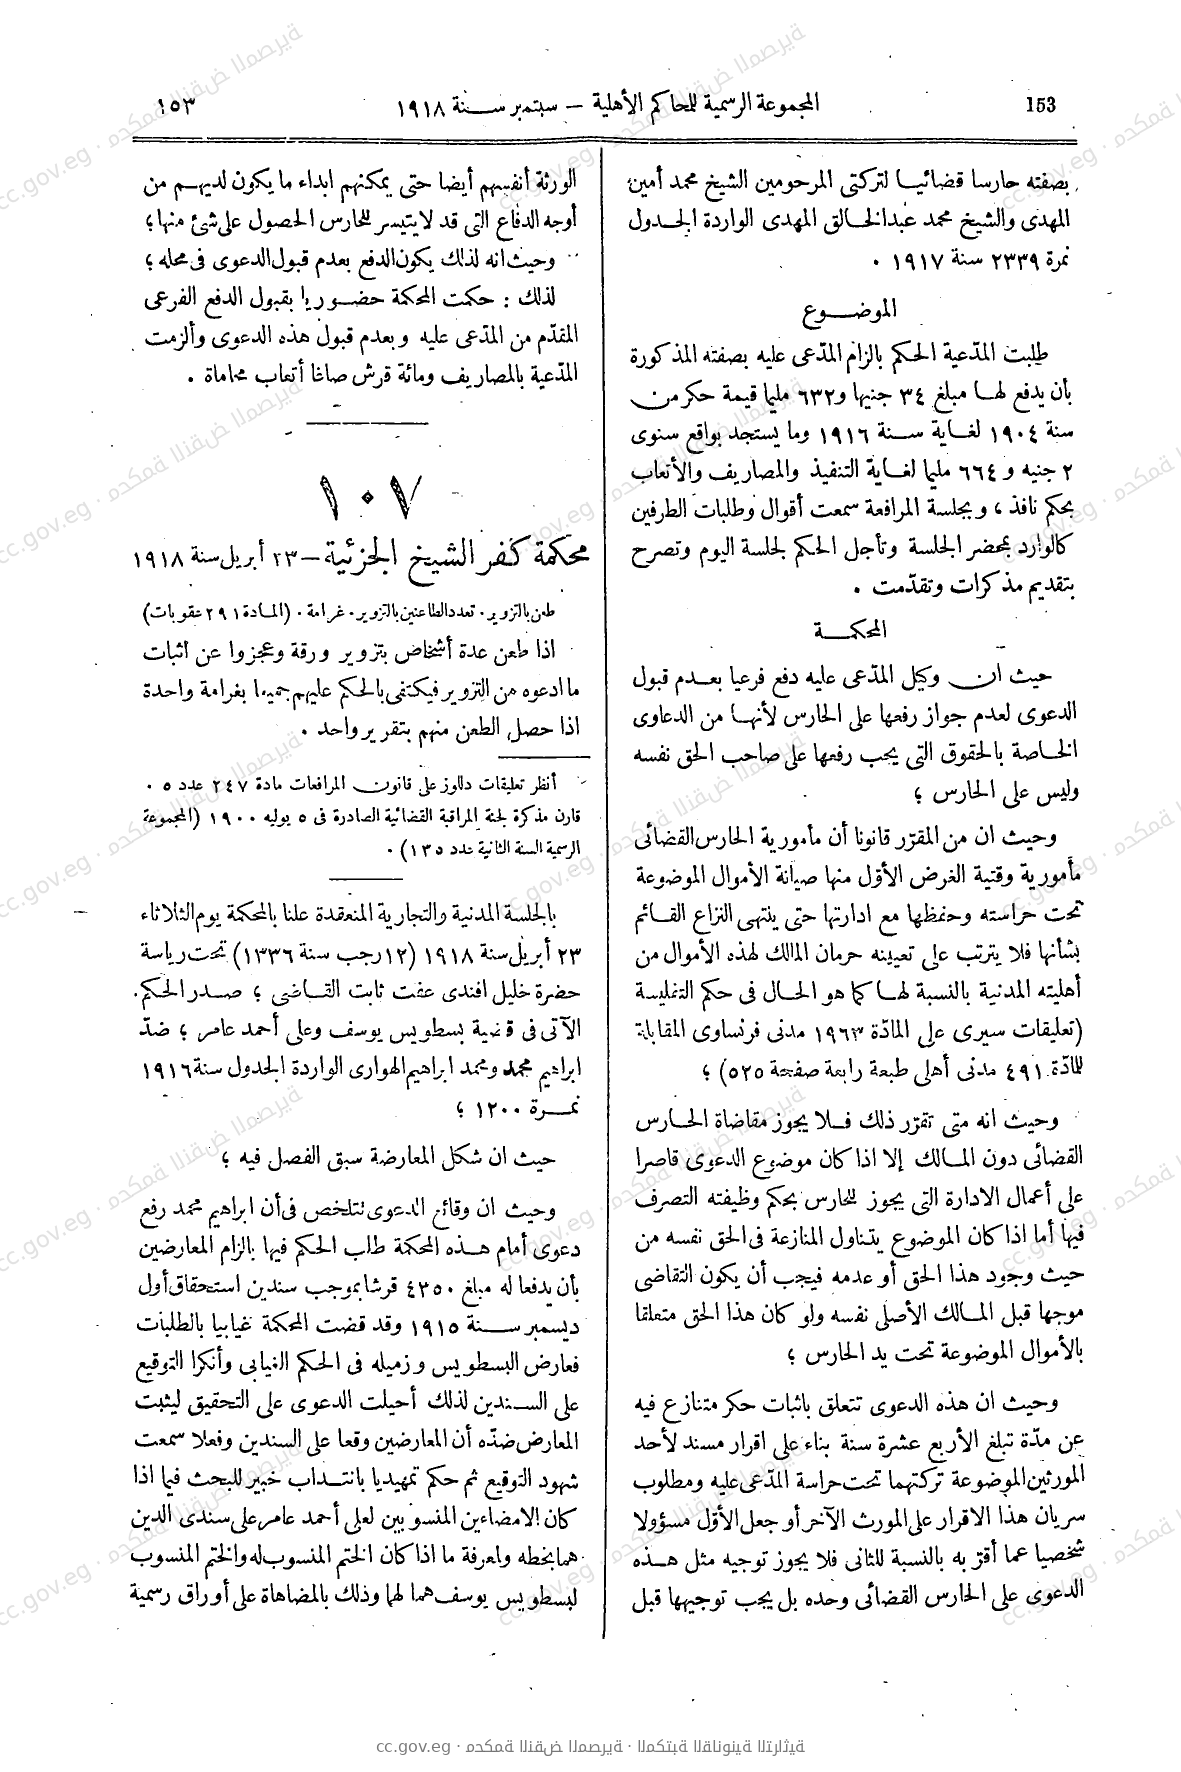 153
المجموعة الرسمية للمحاكم الأهلية – سبتمبر سنة ١٩١٨
١٥٣
بصفته حارسا قضائيا لتركتى المرحومين الشيخ محمد أمين
المهدى والشيخ محمد عبدالخالق المهدى الواردة الجدول
نمرة ٢٣٣٩ سنة ١٩١٧ .
الموضوع
طلبت المدّعية الحكم بالزام المدّعى عليه بصفته المذكورة
بأن يدفع لها مبلغ ٣٤ جنيها و٦٣٢ مليما قيمة حكر من
سنة ١٩٠٤ لغاية سنة ١٩١٦ وما يستجد بواقع سنوى
٢ جنيه و ٦٦٤ مليما لغاية التنفيذ والمصاريف والأتعاب
بحكم نافذ ، وبجلسة المرافعة سمعت أقوال وطلبات الطرفين
كالوارد بمحضر الجلسة وتأجل الحكم لجلسة اليوم وتصرح
بتقديم مذكرات وتقدّمت .
المحكمة
حيث ان وكيل المدّعى عليه دفع فرعيا بعدم قبول
الدعوى لعدم جواز رفعها على الحارس لأنها من الدعاوى
الخاصة بالحقوق التى يجب رفعها على صاحب الحق نفسه
وليس على الحارس ؛
وحيث ان من المقرّر قانونا أن مأمورية الحارس القضائى
مأمورية وقتية الغرض الأوّل منها صيانة الأموال الموضوعة
تحت حراسته وحفظها مع ادارتها حتى ينتهى النزاع القائم
بشأنها فلا يترتب على تعيينه حرمان المالك لهذه الأموال من
أهليته المدنية بالنسبة لها كما هو الحال فى حكم التفليسة
(تعليقات سيرى على المادّة ١٩٦٣ مدنى فرنساوى المقابلة
للمادّة ٤٩١ مدنى أهلى طبعة رابعة صفحة ٥٢٥) ؛
وحيث انه متى تقرّر ذلك فلا يجوز مقاضاة الحارس
القضائى دون المالك إلا اذا كان موضوع الدعوى قاصرا
على أعمال الادارة التى يجوز للحارس بحكم وظيفته التصرف
فيها أما اذا كان الموضوع يتناول المنازعة فى الحق نفسه من
حيث وجود هذا الحق أو عدمه فيجب أن يكون التقاضى
موجها قبل المالك الأصلى نفسه ولو كان هذا الحق متعلقا
بالأموال الموضوعة تحت يد الحارس ؛
وحيث ان هذه الدعوى تتعلق باثبات حكر متنازع فيه
عن مدّة تبلغ الأربع عشرة سنة بناء على اقرار مسند لأحد
المورثين الموضوعة تركتهما تحت حراسة المدّعى عليه ومطلوب
سريان هذا الاقرار على المورث الآخر أو جعل الأوّل مسؤولا
شخصيا عما أقرّ به بالنسبة للثانى فلا يجوز توجيه مثل هذه
الدعوى على الحارس القضائى وحده بل يجب توجيهها قبل
الورثة أنفسهم أيضا حتى يمكنهم ابداء ما يكون لديهم من
أوجه الدفاع التى قد لا يتيسر للحارس الحصول على شئ منها ؛
وحيث انه لذلك يكون الدفع بعدم قبول الدعوى فى محله ؛
لذلك : حكمت المحكمة حضوريا بقبول الدفع الفرعى
المقدّم من المدّعى عليه وبعدم قبول هذه الدعوى وألزمت
المدّعية بالمصاريف ومائة قرش صاغا أتعاب محاماة .
١٠٧
محكمة كفر الشيخ الجزئية – ٢٣ أبريل سنة ١٩١٨
طعن بالتزوير . تعدد الطاعنين بالتزوير . غرامة . (المادة ٢٩١ عقوبات)
اذا طعن عدة أشخاص بتزوير ورقة وعجزوا عن اثبات
ما ادعوه من التزوير فيكتفى بالحكم عليهم جميعا بغرامة واحدة
اذا حصل الطعن منهم بتقرير واحد .
أنظر تعليقات دالوز على قانون المرافعات مادة ٢٤٧ عدد ٥ .
قارن مذكرة لجنة المراقبة القضائية الصادرة فى ٥ يوليه ١٩٠٠ (المجموعة
الرسمية السنة الثانية عدد ١٣٥) .
بالجلسة المدنية والتجارية المنعقدة علنا بالمحكمة يوم الثلاثاء
٢٣ أبريل سنة ١٩١٨ (١٢ رجب سنة ١٣٣٦) تحت رياسة
حضرة خليل افندى عفت ثابت القاضى ؛ صدر الحكم
الآتى فى قضية بسطويس يوسف وعلى أحمد عامر ؛ ضدّ
ابراهيم محمد ومحمد ابراهيم الهوارى الواردة الجدول سنة ١٩١٦
نمرة ١٢٠٠ ؛
حيث ان شكل المعارضة سبق الفصل فيه ؛
وحيث ان وقائع الدعوى تتلخص فى أن ابراهيم محمد رفع
دعوى أمام هذه المحكمة طلب الحكم فيها بالزام المعارضين
بأن يدفعا له مبلغ ٤٣٥٠ قرشا بموجب سندين استحقاق أول
ديسمبر سنة ١٩١٥ وقد قضت المحكمة غيابيا بالطلبات
فعارض البسطويس وزميله فى الحكم الغيابى وأنكرا التوقيع
على السندين لذلك أحيلت الدعوى على التحقيق ليثبت
المعارض ضدّه أن المعارضين وقعا على السندين وفعلا سمعت
شهود التوقيع ثم حكم تمهيديا بانتداب خبير للبحث فيما اذا
كان الامضاءين المنسوبين لعلى أحمد عامر على سندى الدين
هما بخطه ولمعرفة ما اذا كان الختم المنسوب له والختم المنسوب
لبسطويس يوسف هما لهما وذلك بالمضاهاة على أوراق رسمية
cc.gov.eg · محكمة النقض المصرية · المكتبة القانونية التراثية